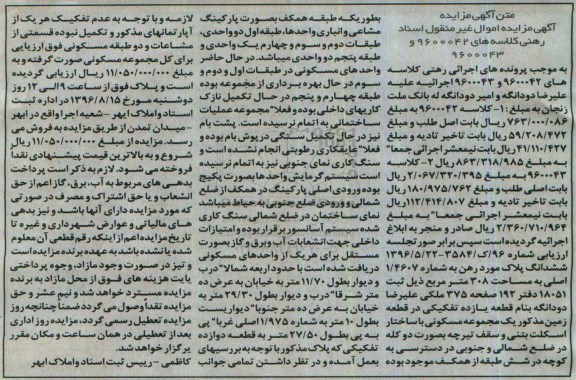 متن آگهی مزایده
آگهی مزایده اموال غیر منقول اسناد
رهنی کلاسه های ۹۶۰۰۰۴۲ و
۹۶۰۰۰۴۳
به موجب پرونده های اجرائی رهنی کلاسه
های ۹۶۰۰۰۴۲ و ۹۶۰۰۰۴۳ اجرائیه علیه
علیرضا دودانگه و امیر دودانگه له بانک ملت
زنجان به مبلغ: ۱- کلاسه ۹۶۰۰۰۴۲ به مبلغ
۷۶۳/۰۰۰/۰۸۶ ریال بابت اصل طلب و مبلغ
۵۹/۲۰۸/۴۷۲ ریال بابت تاخیر تادیه و مبلغ
۴۱/۱۱۰/۴۲۷ ریال بابت نیمعشر اجرائی جمعا"
به مبلغ ۸۶۳/۳۱۸/۹۸۵ ریال ۲- کلاسه
۹۶۰۰۰۴۳ به مبلغ ۲/۰۶۷/۳۲۰/۳۹۵ ریال
بابت اصلی طلب و مبلغ ۱۸۰/۹۷۵/۷۶۲ ریال
بابت تاخیر تادیه و مبلغ ۱۱۲/۴۱۴/۸۰۷ ریال
بابت نیمعشر اجرائی جمعا" به مبلغ
۲/۳۶۰/۷۱۰/۹۶۴ ریال صادر و منجر به ابلاغ
اجرائیه گردیده است سپس برابر صورتجلسه
ارزیابی شماره ۹۶/ک/۳۵۸۴-۱۳۹۶/۵/۲۲
ششدانگ پلاک مورد رهن به شماره ۱/۴۶۰۷
اصلی به مساحت ۳۰۸ متر مربع ذیل ثبت
۱۸۰۵۱ دفتر ۱۹۲ صفحه ۳۷۵ ملکی علیرضا
دودانگه بنام قطعه یازده تفکیکی در قطعه
زمین مذکور یک مجموعه مسکونی با ساختار
اسکلت بتنی و سقف تیرچه بصورت دو کله
در ضلع شمالی و جنوبی در دسترسی به
کوچه در شش طبقه از همکف موجود بوده
بطوریکه طبقه همکف بصورت پارکینگ
مشاعی و انباری واحدها، طبقه اول دو واحدی،
طبقات دوم و سوم و چهارم یک واحدی و
طبقه پنجم دو واحدی میباشد. در حال حاضر
واحد های مسکونی در طبقات اول و دوم و
سوم در حال بهره برداری از مجموعه بوده
طبقه چهارم و پنجم در حال تکمیل نازک
کاریهای داخلی بوده و فعلا" مجموعه عملیات
ساختمانی به اتمام نرسیده است. پشت بام
نیز در حال تکمیل سنگی در پوش بام بوده و
فعلا" عایقکاری رطوبتی انجام نشده است و
سنگ کاری نمای جنوبی نیز به اتمام نرسیده
است سیستم گرمایش واحدها بصورت پکیج
بوده ورودی اصلی پارکینگ در همکف از ضلع
شمالی و ورودی ضلع جنوبی به حیاط میباشد
نمای ساختمان در ضلع شمالی سنگ کاری
شده سیستم آسانسور برقرار بوده و امتیازات
داخلی جهت انشعابات آب و برق و گاز بصورت
مستقل برای هر یک از واحدهای مسکونی
دریافت شده است با حدود اربعه شمالا" درب
و دیوار بطول ۱۱/۷۰ متر به خیابان به عرض ده
متر شرقا" درب و دیوار بطول ۲۹/۳۰ متر به
خیابان به عرض ده متر جنوبا" دیواریست
بطول ۱۰ متر به شماره ۱/۹۷۵ اصلی غربا" پی
به پی بطول ۲۷/۵۰ متر به قطعه دوازده
تفکیکی که پلاک مذکور با توجه به بررسیهای
بعمل آمده و در نظر داشتن تمامی جوانب
لازمه و با توجه به عدم تفکیک هر یک از
آپارتمانهای مذکور و تکمیل نبوده قسمتی از
مشاعات و دو طبقه مسکونی فوق ارزیابی
برای کل مجموعه مسکونی صورت گرفته و به
مبلغ ۱۱/۰۵۰/۰۰۰/۰۰۰ ریال ارزیابی گردیده
است و پلاک فوق از ساعت ۹ الی ۱۲ روز
دوشنبه مورخ ۱۳۹۶/۸/۱۵ در اداره ثبت
اسناد و املاک ابهر - شعبه اجرا واقع در ابهر
- میدان تمدن از طریق مزایده به فروش می
رسد. مزایده از مبلغ ۱۱/۰۵۰/۰۰۰/۰۰۰ ریال
شروع و به بالاترین قیمت پیشنهادی نقدا
فروخته می شود. لازم به ذکر است پرداخت
بدهی های مربوط به آب، برق، گاز اعم از حق
انشعاب و یا حق اشتراک و مصرف در صورتی
که مورد مزایده دارای آنها باشد و نیز بدهی
های مالیاتی و عوارض شهرداری و غیره تا
تاریخ مزایده اعم از اینکه رقم قطعی آن معلوم
شده یا نشده باشد به عهده برنده مزایده است
و نیز در صورت وجود مازاد، وجوه پرداختی
بابت هزینه های فوق از محل مازاد به برنده
مزایده مسترد خواهد شد و نیم عشر و حق
مزایده نقدا وصول می گردد ضمنا چنانچه روز
مزایده تعطیل رسمی گردد، مزایده روز اداری
بعد از تعطیلی در همان ساعت و مکان مقرر
برگزار خواهد شد.
کاظمی - رییس ثبت اسناد و املاک ابهر